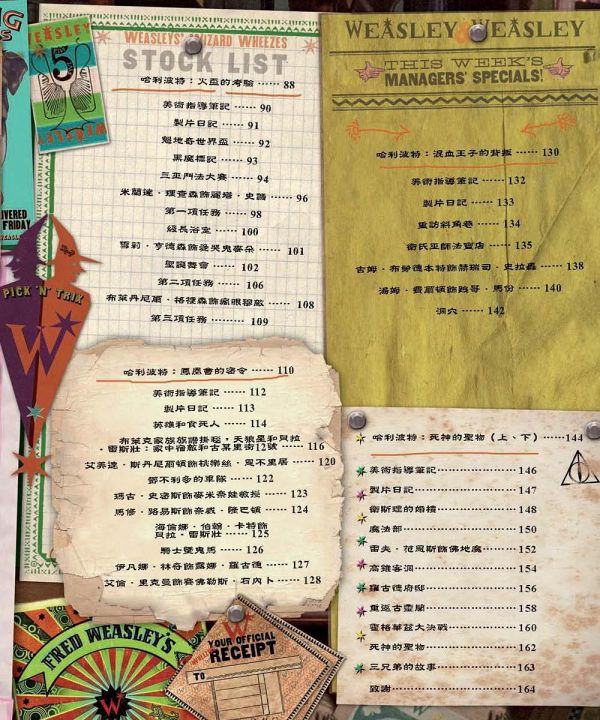 WEASLEY
5
WEASLEY
WEASLEYS' WIZARD WHEEZES
STOCK LIST
哈利波特：火盃的考驗 …… 88
美術指導筆記 …… 90
製片日記 …… 91
魁地奇世界盃 …… 92
黑魔標記 …… 93
三巫鬥法大賽 …… 94
米蘭達・理查森飾麗塔・史譏 …… 96
第一項任務 …… 98
級長浴室 …… 100
雪莉・亨德森飾愛哭鬼麥朵 …… 101
聖誕舞會 …… 102
第二項任務 …… 106
布萊丹尼爾・格里森飾瘋眼穆敵 …… 108
第三項任務 …… 109
哈利波特：鳳凰會的密令 …… 110
美術指導筆記 …… 112
製片日記 …… 113
英雄和食死人 …… 114
布萊克家族族譜掛毯，天狼星和貝拉
・雷斯壯：家中宿敵和古某里街12號 …… 116
艾美達・斯丹尼爾頓飾桃樂絲・恩不里居 …… 120
鄧不利多的軍隊 …… 122
瑪吉・史密斯飾麥米奈娃教授 …… 123
馬修・路易斯飾奈威・隆巴頓 …… 124
海倫娜・伯翰・卡特飾
貝拉・雷斯壯 …… 125
騎士墜鬼馬 …… 126
伊凡娜・林奇飾露娜・羅古德 …… 127
艾倫・里克曼飾賽佛勒斯・石內卜 …… 128
WEASLEY & WEASLEY
THIS WEEK'S
MANAGERS' SPECIALS!
哈利波特：混血王子的背叛 …… 130
美術指導筆記 …… 132
製片日記 …… 133
重訪斜角巷 …… 134
衛氏巫師法寶店 …… 135
吉姆・布勞德本特飾赫瑞司・史拉轟 …… 138
湯姆・費爾頓飾跩哥・馬份 …… 140
洞穴 …… 142
哈利波特：死神的聖物（上、下） …… 144
美術指導筆記 …… 146
製片日記 …… 147
衛斯理的婚禮 …… 148
魔法部 …… 150
雷夫・范恩斯飾佛地魔 …… 152
高錐客洞 …… 154
羅古德府邸 …… 156
重返古靈閣 …… 158
霍格華茲大決戰 …… 160
死神的聖物 …… 162
三兄弟的故事 …… 163
致謝 …… 164
PICK 'N' TRIX
W
FRED WEASLEY'S
W
YOUR OFFICIAL
RECEIPT
TO